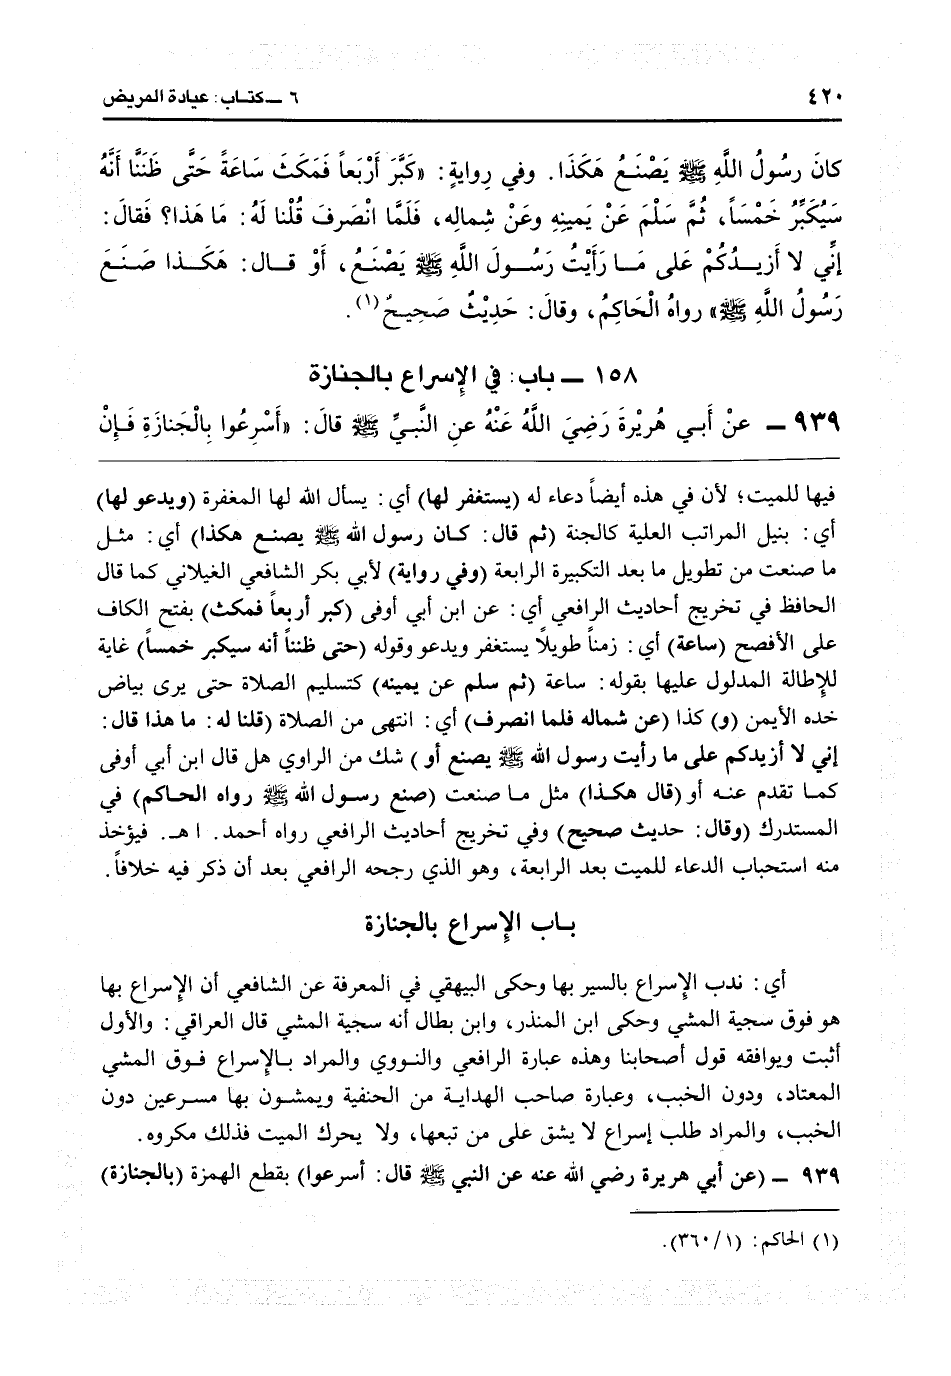 ٤٢٠ ٦ ــ كتـاب: عيادة المريض
كانَ رسُولُ اللَّهِ ﷺ يَصْنَعُ هَكَذَا. وفي رِوايةٍ: «كَبَّرَ أَرْبَعاً فَمَكَثَ سَاعَةً حَتَّى ظَنَنَّا أَنَّهُ
سَيُكَبِّرُ خَمْسَاً، ثُمَّ سَلَّمَ عَنْ يَمِينِهِ وعَنْ شِمالِهِ، فَلَمَّا انْصَرَفَ قُلْنا لَهُ: مَا هَذا؟ فَقالَ:
إنِّي لا أَزِيدُكُمْ عَلى مَا رَأَيْتُ رَسُولَ اللَّهِ ﷺ يَصْنَعُ، أَوْ قـال: هَكَـذا صَنَعَ
رَسُولُ اللَّهِ ﷺ» رواهُ الْحَاكِمُ، وقالَ: حَدِيْثٌ صَحِيحٌ(١).
١٥٨ ــ باب: في الإسراع بالجنازة
٩٣٩ ــ عنْ أَبـي هُرَيْرةَ رَضِيَ اللَّهُ عَنْهُ عنِ النَّبِيِّ ﷺ قالَ: «أَسْرِعُوا بِالْجَنازَةِ فَإِنْ
فيها للميت؛ لأن في هذه أيضاً دعاء له (يستغفر لها) أي: يسأل الله لها المغفرة (ويدعو لها)
أي: بنيل المراتب العلية كالجنة (ثم قال: كـان رسول الله ﷺ يصنـع هكذا) أي: مثـل
ما صنعت من تطويل ما بعد التكبيرة الرابعة (وفي رواية) لأبي بكر الشافعي الغيلاني كما قال
الحافظ في تخريج أحاديث الرافعي أي: عن ابن أبي أوفى (كبر أربعاً فمكث) بفتح الكاف
على الأفصح (ساعة) أي: زمناً طويلاً يستغفر ويدعو وقوله (حتى ظننا أنه سيكبر خمساً) غاية
للإطالة المدلول عليها بقوله: ساعة (ثم سلم عن يمينه) كتسليم الصلاة حتى يرى بياض
خده الأيمن (و) كذا (عن شماله فلما انصرف) أي: انتهى من الصلاة (قلنا له: ما هذا قال:
إني لا أزيدكم على ما رأيت رسول الله ﷺ يصنع أو ) شك من الراوي هل قال ابن أبي أوفى
كمـا تقدم عنـه أو (قال هكـذا) مثل مـا صنعت (صنع رسـول الله ﷺ رواه الحـاكم) في
المستدرك (وقال: حديث صحيح) وفي تخريج أحاديث الرافعي رواه أحمد. ا هـ. فيؤخذ
منه استحباب الدعاء للميت بعد الرابعة، وهو الذي رجحه الرافعي بعد أن ذكر فيه خلافاً.
بـاب الإسراع بالجنازة
أي: ندب الإسراع بالسير بها وحكى البيهقي في المعرفة عن الشافعي أن الإسراع بها
هو فوق سجية المشي وحكى ابن المنذر، وابن بطال أنه سجية المشي قال العراقي: والأول
أثبت ويوافقه قول أصحابنا وهذه عبارة الرافعي والنـووي والمراد بـالإسراع فـوق المشي
المعتاد، ودون الخبب، وعبارة صاحب الهدايـة من الحنفية ويمشـون بها مسـرعين دون
الخبب، والمراد طلب إسراع لا يشق على من تبعها، ولا يحرك الميت فذلك مكروه.
٩٣٩ ــ (عن أبي هريرة رضي الله عنه عن النبي ﷺ قال: أسرعوا) بقطع الهمزة (بالجنازة)
(١) الحاكم: (٣٦٠/١).